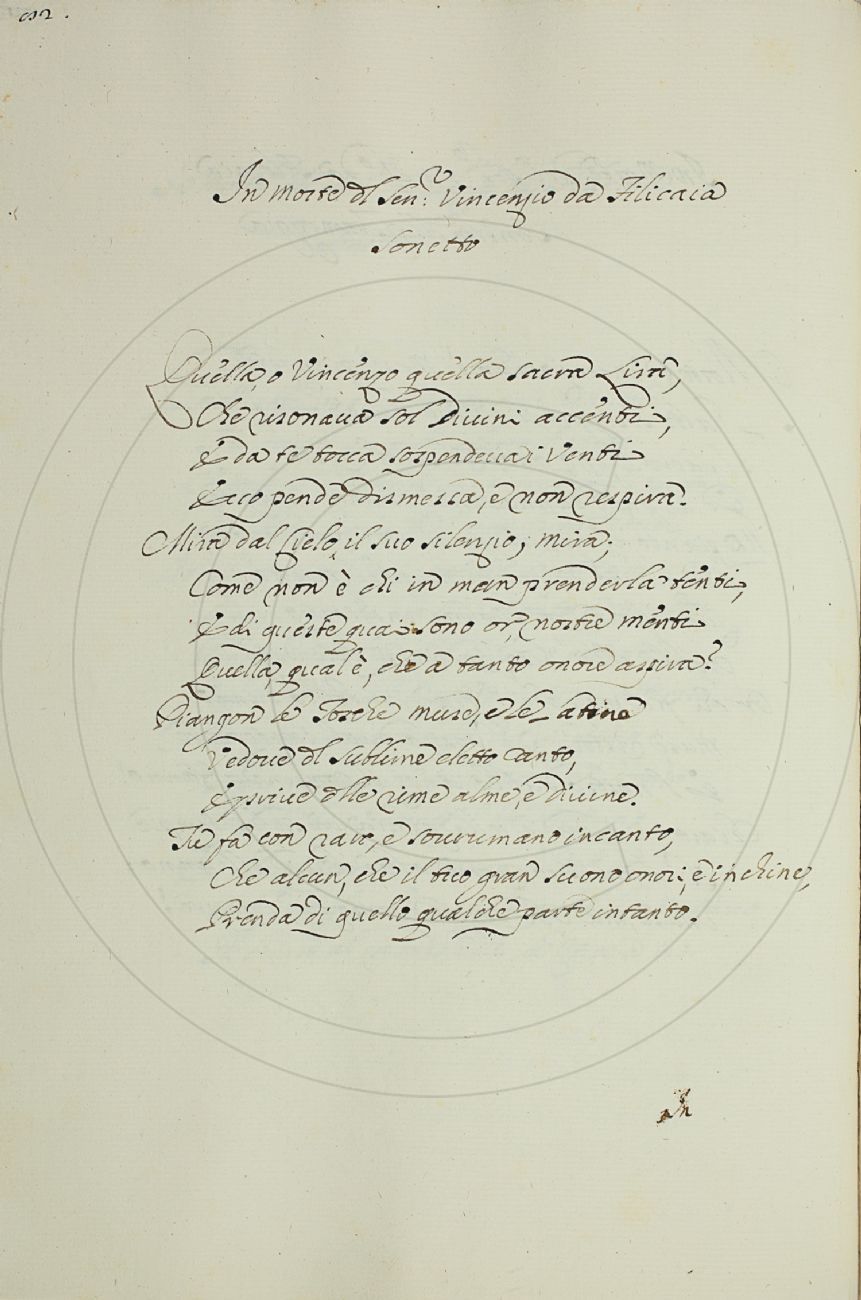 In morte dl Sen.r Vincenzio da Filicaia
Sonetto
Quella, o Vincenzo quella sacra Lira,
Che risonava sol Divini accenti,
E da te tocca sospendeva i Venti
Ecco pende dismessa, e non respira.
Mira dal Cielo, il suo silenzio, mira;
Come non è chi in man prenderla tenti,
E di queste qua sono or, nostre menti
Quella, qual è, che a tanto onore aspira?
Piangon le Tosche muse, e le Latine
Vedove dl sublime eletto canto,
E prive dlle rime alme, e divine.
Tu fa con raro, e sovrumano incanto,
Che alcun, che il tuo gran suono onori, e inchine,
Prenda di quello qualche parte intanto.
In